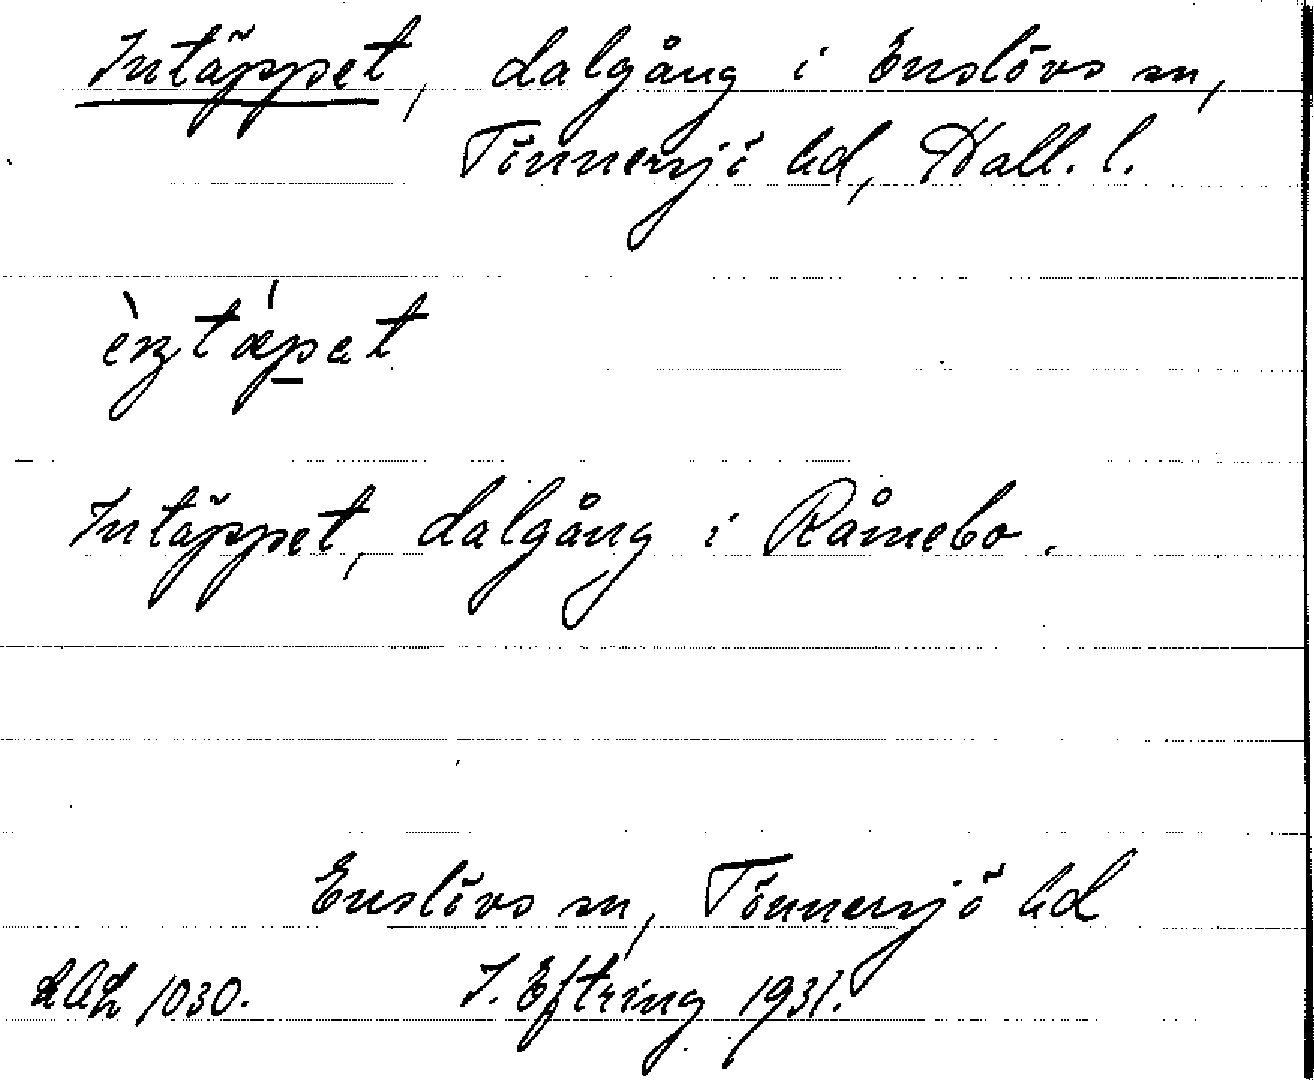 Intäppet, dalgång i Enslövs sn,
Tönnersjö hd, Hall. l.
Intäppet, dalgång i Råmebo.
Enslövs sn, Tönnersjö hd
LAL 1030. J. Eftring 1931.